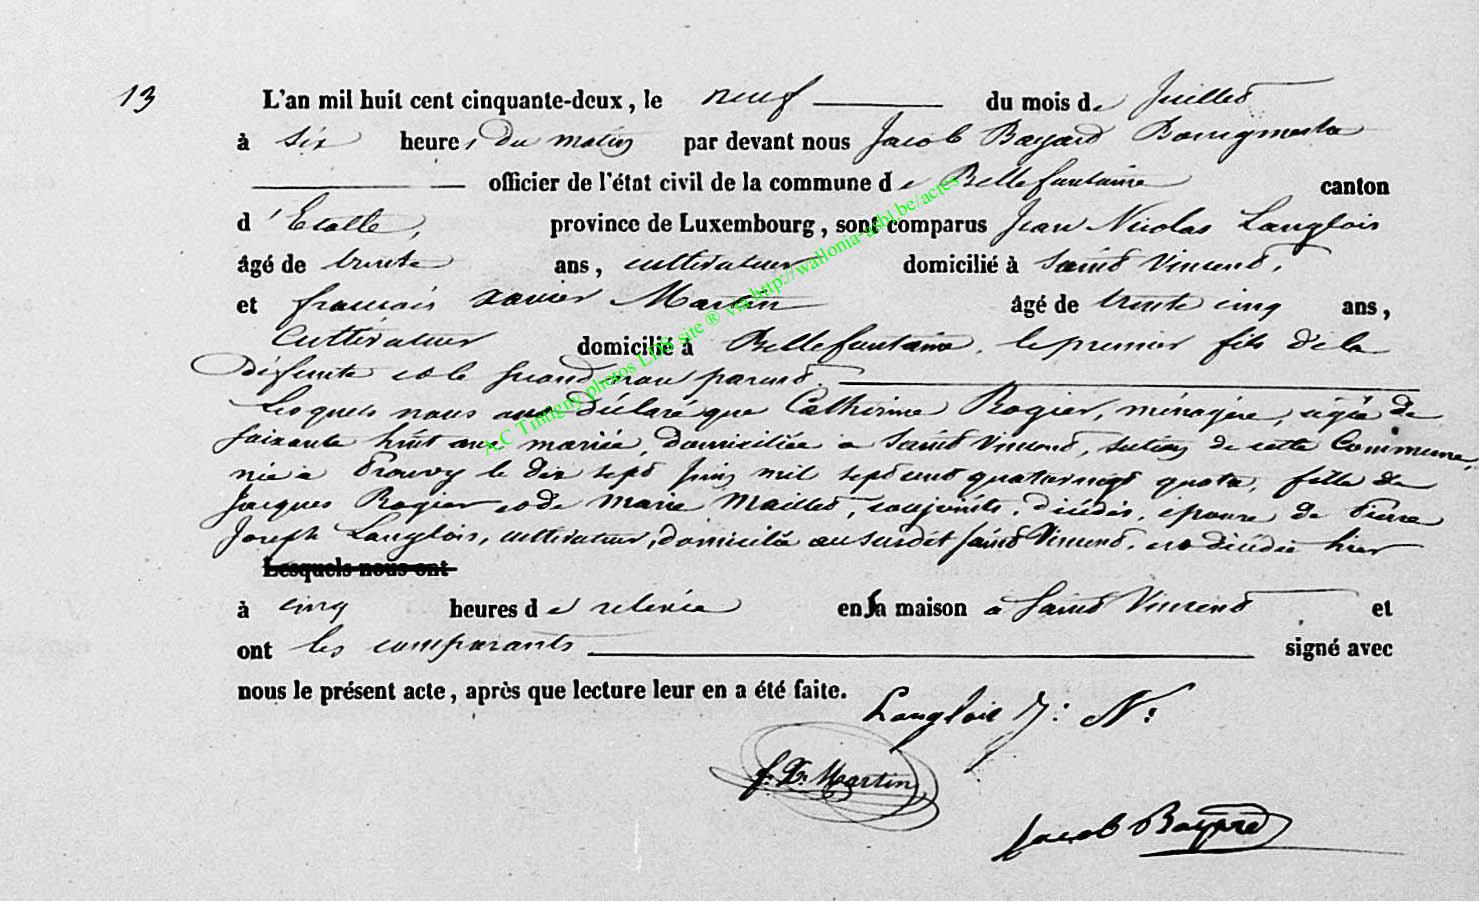 13 L'an mil huit cent cinquante-deux, le neuf du mois de Juillet
à six heures du matin par devant nous Jacob Bayard Bourgmestre
officier de l'état civil de la commune de Bellefontaine canton
d'Etalle, province de Luxembourg, sont comparus Jean Nicolas Langlois
âgé de trente ans, cultivateur domicilié à Saint Vincent,
et français xavier Martin âgé de trente cinq ans,
Cultivateur domicilié à Bellefontaine, le premier fils de la
Défunte et le second non parent.
Lesquels nous ont Déclaré que Catherine Rogier, ménagère, agée de
soixante huit ans mariée, domiciliée à Saint Vincent, section de cette Commune,
née à Prouvy le dix sept Juin mil sept cent quatrevingt quatre, fille de
Jacques Rogier et de Marie Maillet, conjoints, décédés, épouse de Pierre
Joseph Langlois, cultivateur, domicilié au susdit Saint Vincent, est décédée hier
Lesquels nous ont
à cinq heures de relevée en sa maison à Saint Vincent et
ont les comparants signé avec
nous le présent acte, après que lecture leur en a été faite.
Langlois J: N:
f. X. Martin
Jacob Bayard
A.C Tintigny photos LDS site ® via http://wallonia-asbl.be/actes